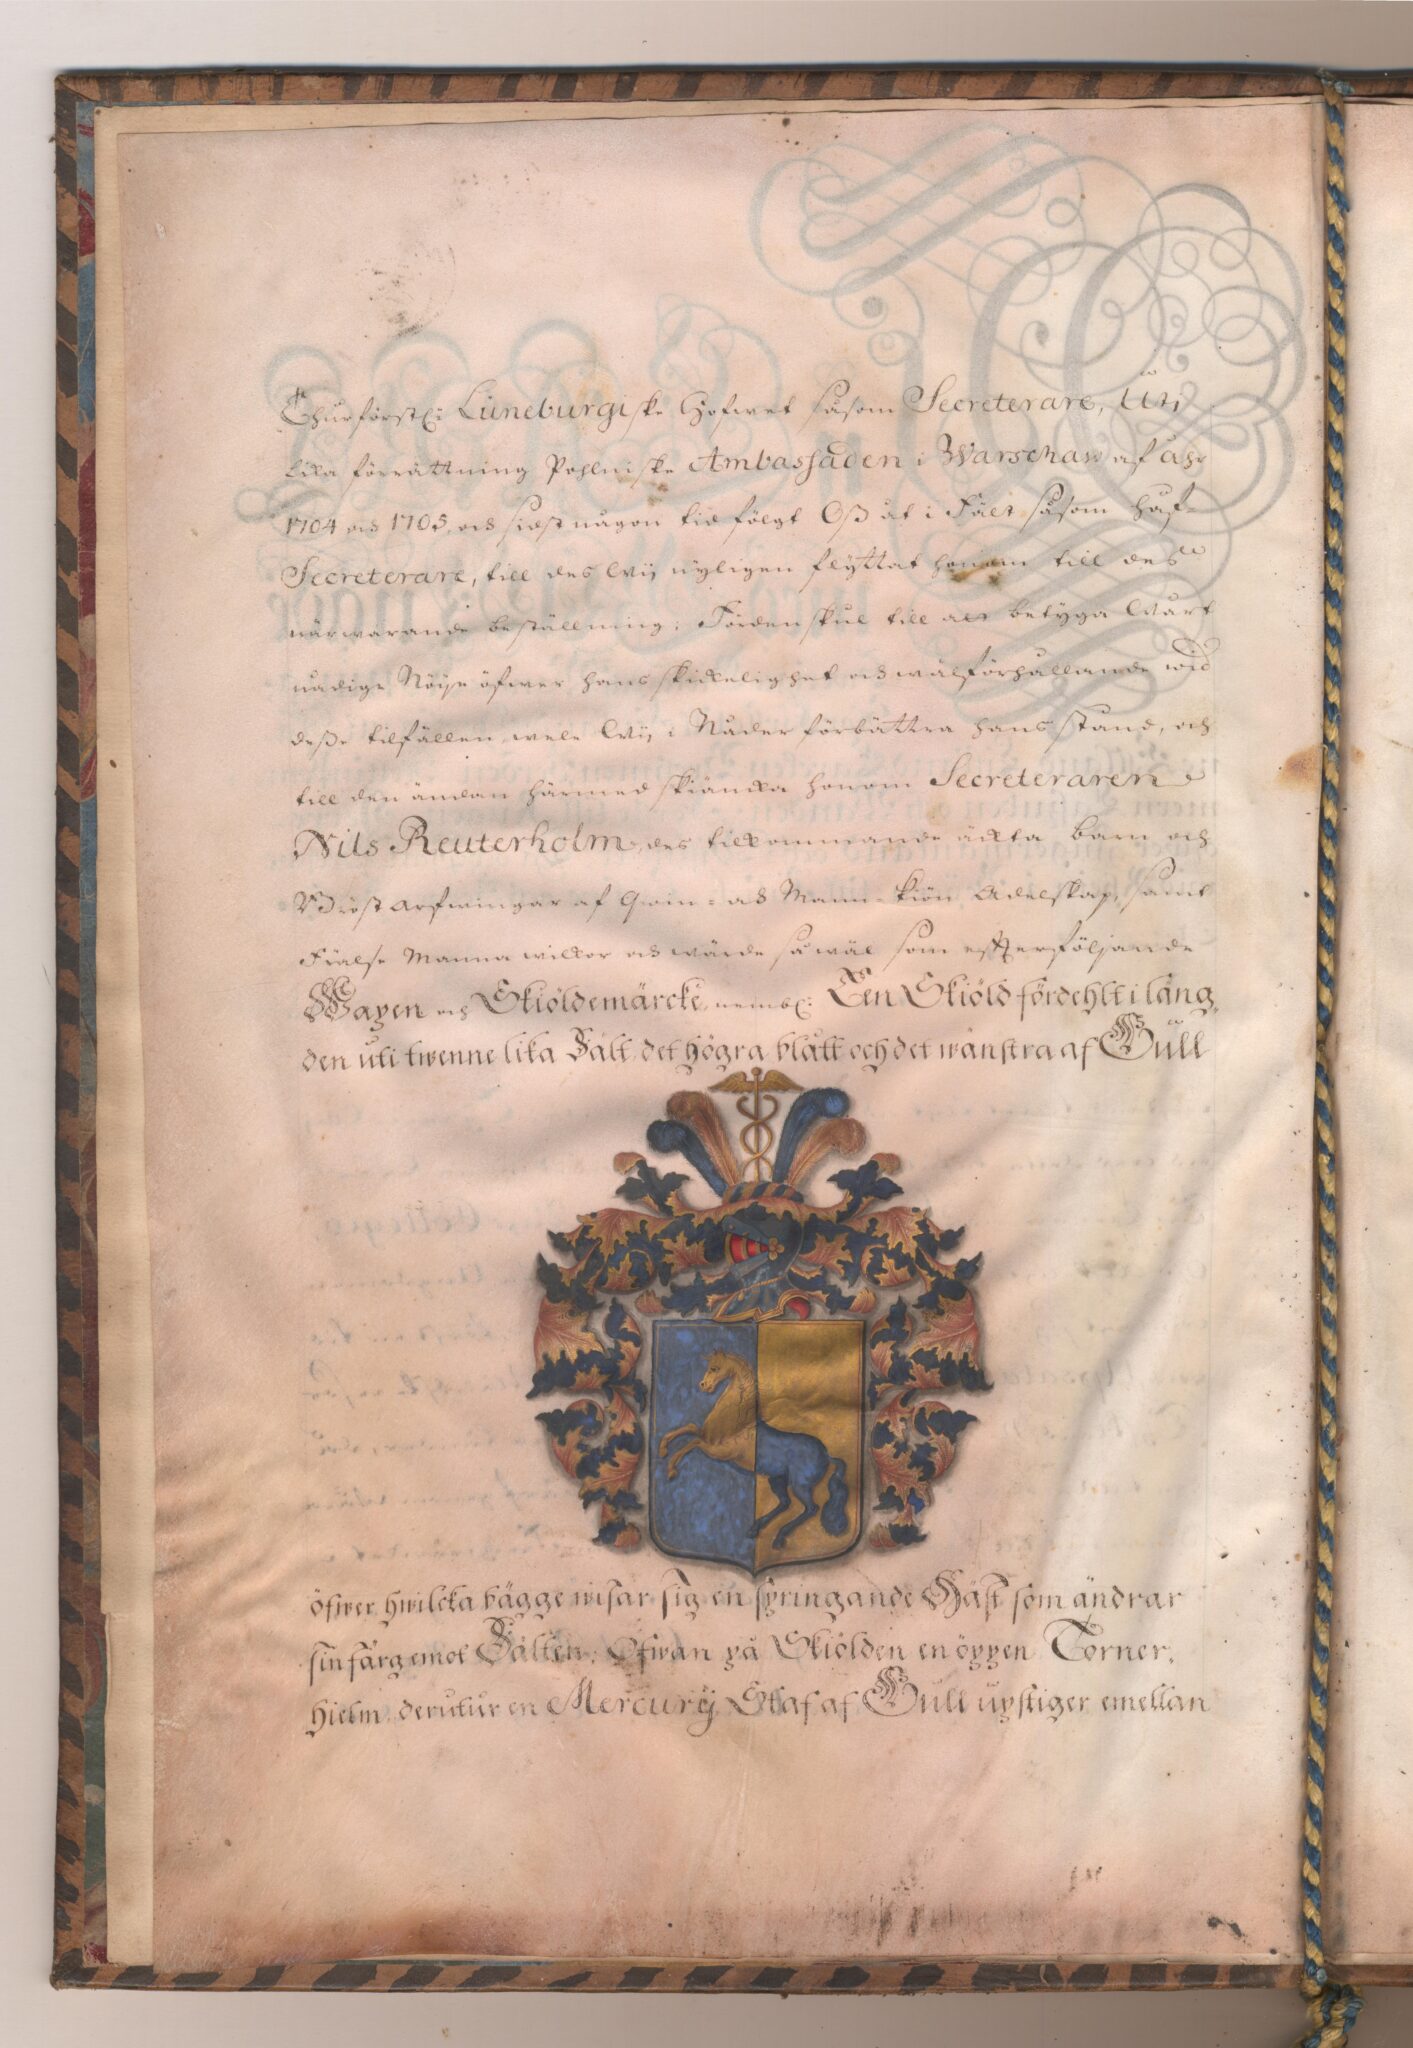 Churförstl: Lüneburgiske Hofwet såsom Secreterare, Uti
lika förrättning Pohlniske Ambassaden i Warschaw af åhr
1704 och 1705, och sidst någon tid fölgt Oß åt i Fält såsom Hof-
Secreterare, till des Wij nyligen flyttat honom till des
närwarande beställning; Fördenskul till at betyga Wårt
nådige Nöije öfwer hans skickelighet och wälförhållande wid
deße tilfällen, wele Wij i Nåder förbättra hans stånd, och
till den ändan härmed skiänka honom Secreteraren
Nils Reuterholm, des tilkommande äckta barn och
Bröst arfwingar af Qwin- och Mann-kiön Adelskap, samt
Frälse Manna wilkor och wärde så wäl som efterföljande
Wapen och Skiöldemärcke, nembl: Een Skiöld fördehlt i läng-
den uti twenne lika Fält, det högra blått och det wänstra af Gull
öfwer hwilcka bägge wisar sig en springande Häst som ändrar
sin färg emot Fälten; Ofwan på Skiölden en öppen Torner-
hielm, derutur en Mercurij Staf af Gull upstiger emellan